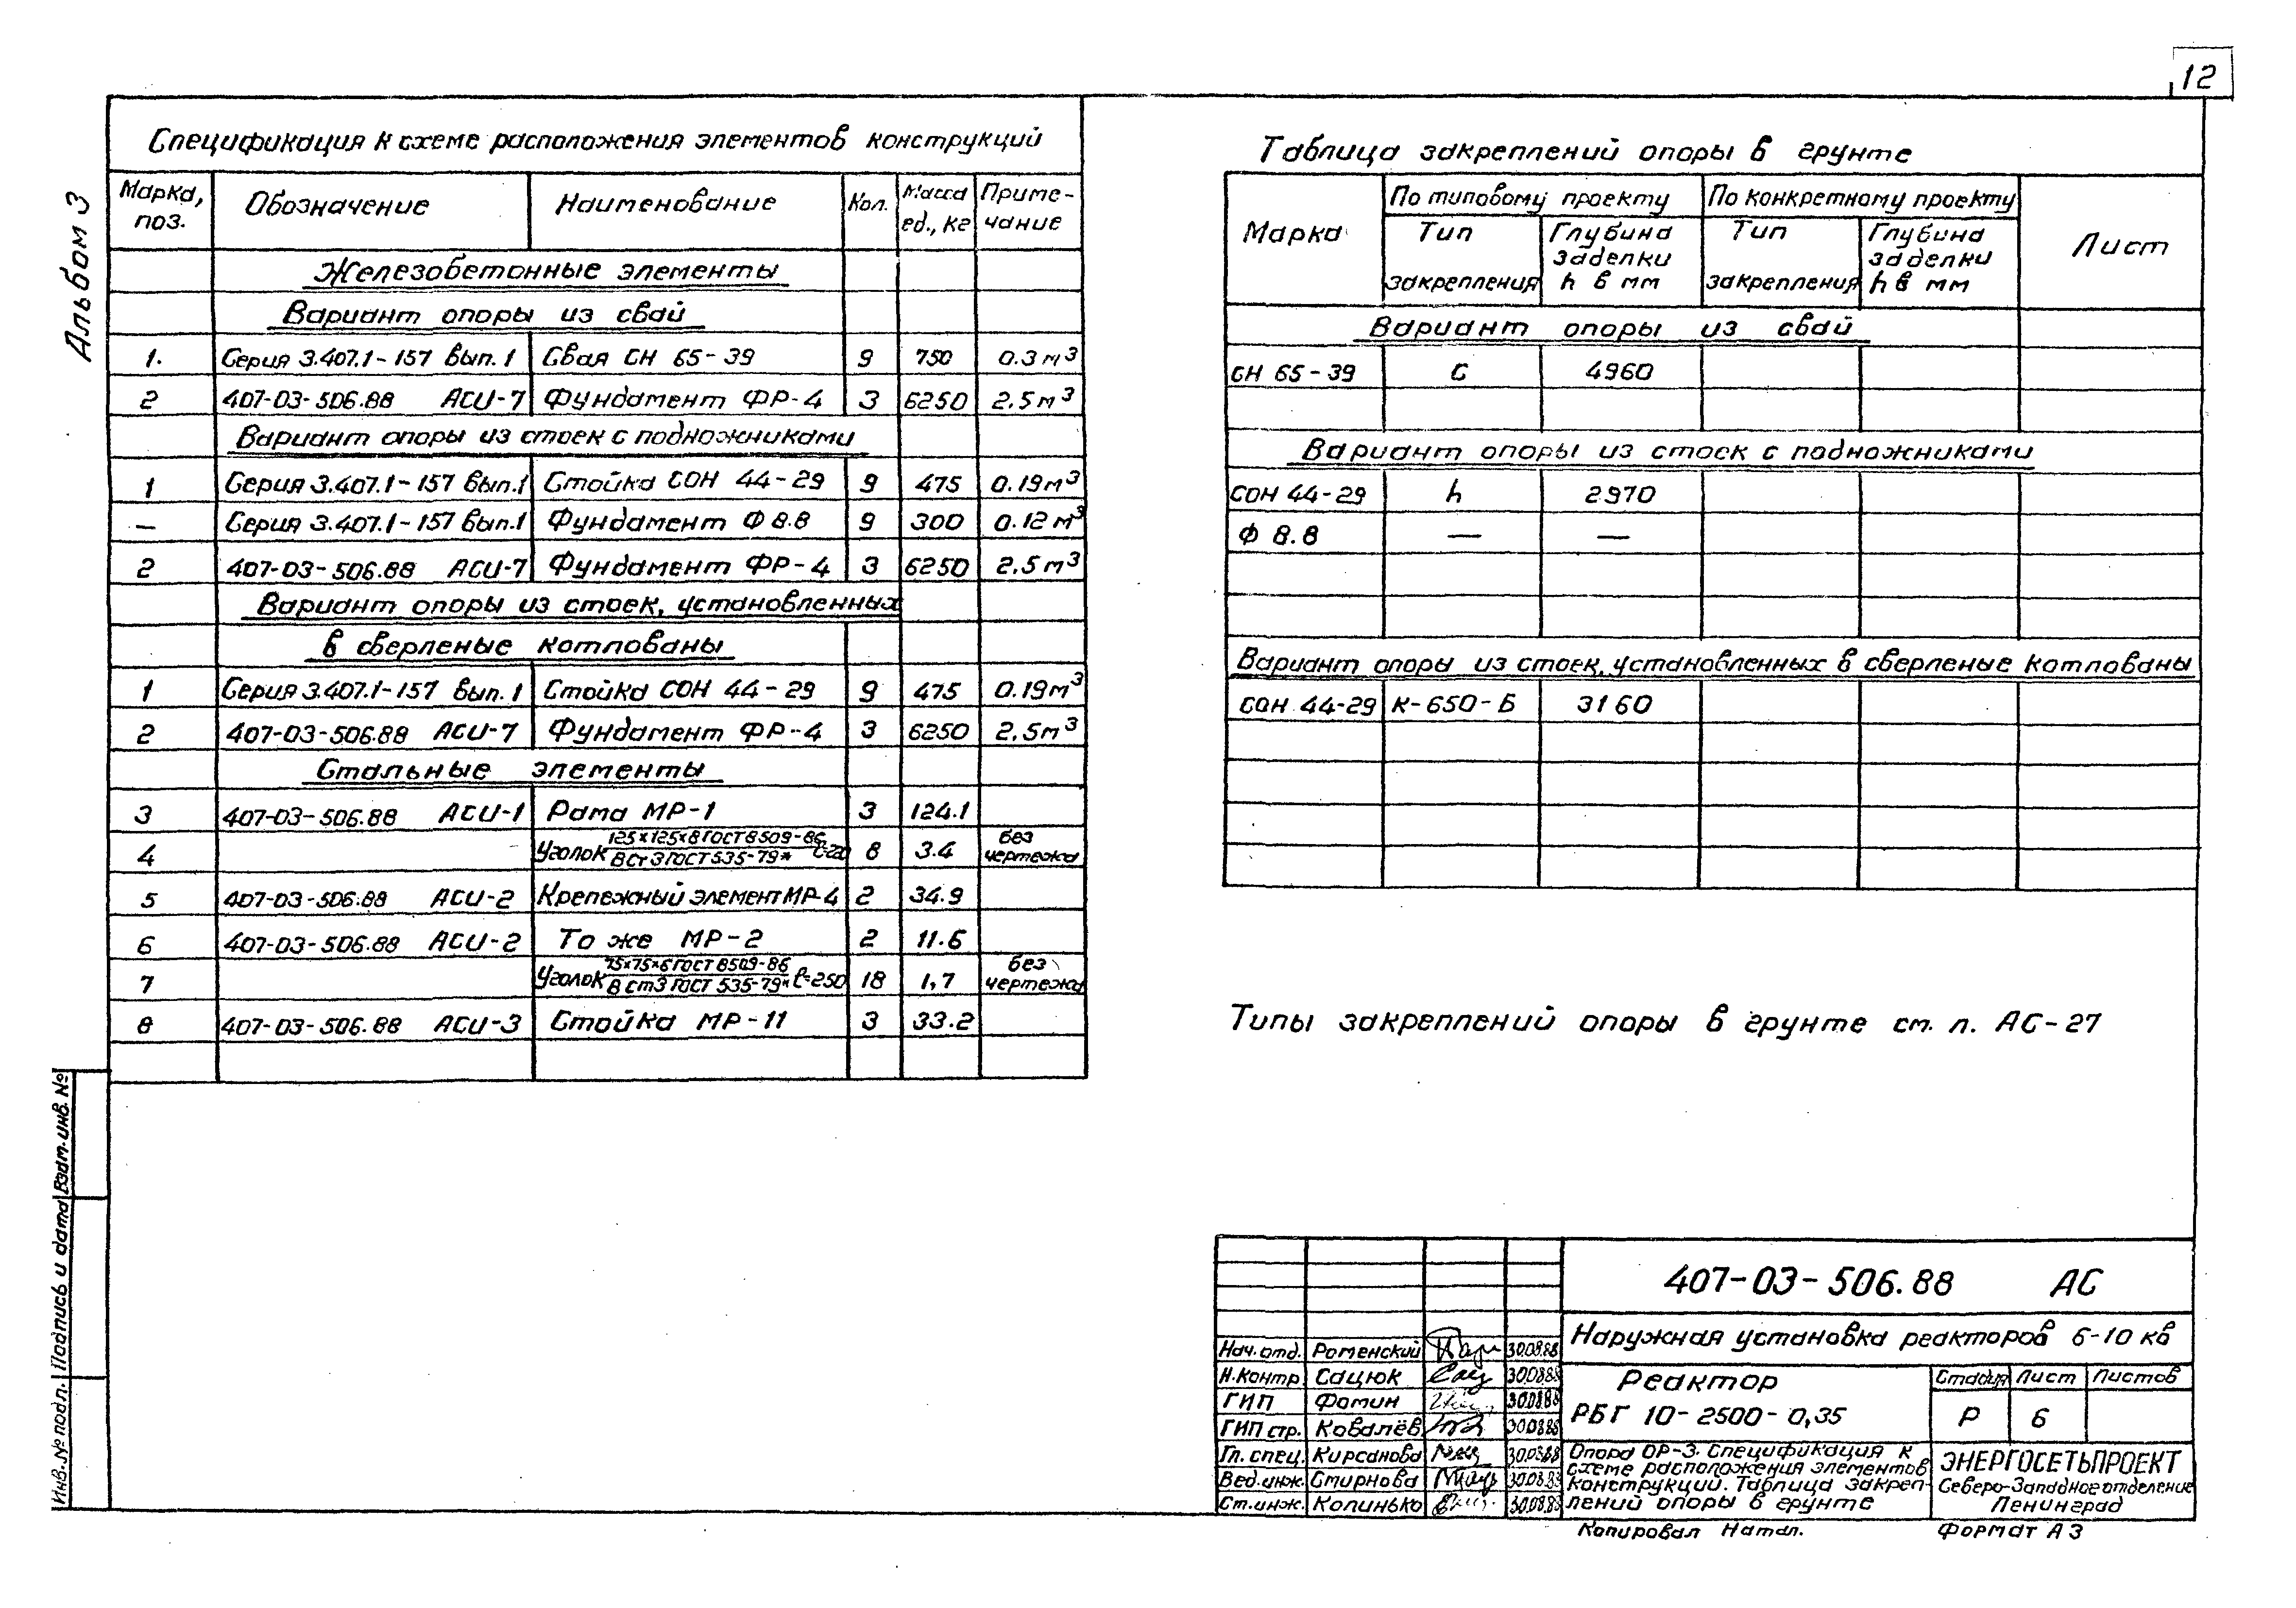 12
Альбом 3
Спецификация к схеме расположения элементов конструкций
Марка, поз. Обозначение Наименование Кол. Масса ед., кг Приме-чание
Железобетонные элементы
Вариант опоры из свай
1. Серия 3.407.1-157 вып. 1 Свая СН 65-39 9 750 0.3 м³
2 407-03-506.88 АСИ-7 Фундамент ФР-4 3 6250 2.5 м³
Вариант опоры из стоек с подножниками
1 Серия 3.407.1-157 вып.1 Стойка СОН 44-29 9 475 0.19 м³
— Серия 3.407.1-157 вып.1 Фундамент Ф 8.8 9 300 0.12 м³
2 407-03-506.88 АСИ-7 Фундамент ФР-4 3 6250 2.5 м³
Вариант опоры из стоек, установленных
в сверленые котлованы
1 Серия 3.407.1-157 вып. 1 Стойка СОН 44-29 9 475 0.19 м³
2 407-03-506.88 АСИ-7 Фундамент ФР-4 3 6250 2.5 м³
Стальные элементы
3 407-03-506.88 АСИ-1 Рама МР-1 3 124.1
4 Уголок 125×125×8 ГОСТ 8509-86 / ВСт 3 ГОСТ 535-79* 8 3.4 без чертежа
5 407-03-506.88 АСИ-2 Крепежный элемент МР-4 2 34.9
6 407-03-506.88 АСИ-2 То же МР-2 2 11.6
7 Уголок 75×75×6 ГОСТ 8509-86 / В ст3 ГОСТ 535-79* ℓ=250 18 1,7 без чертежа
8 407-03-506.88 АСИ-3 Стойка МР-11 3 33.2
Таблица закреплений опоры в грунте
Марка По типовому проекту По конкретному проекту Лист
Тип закрепления Глубина заделки h в мм Тип закрепления Глубина заделки h в мм
Вариант опоры из свай
СН 65-39 С 4960
Вариант опоры из стоек с подножниками
СОН 44-29 h 2970
Ф 8.8 — —
Вариант опоры из стоек, установленных в сверленые котлованы
СОН 44-29 К-650-Б 3160
Типы закреплений опоры в грунте см. л. АС-27
407-03-506.88 АС
Наружная установка реакторов 6-10 кв
Нач. отд. Роменский 30.08.88
Н.контр. Сацюк 30.08.88
ГИП Фомин 30.08.88
ГИП стр. Ковалёв 30.08.88
Гл. спец. Кирсанова 30.08.88
Вед.инж. Смирнова 30.08.88
Ст.инж. Колинько 30.08.88
Реактор
РБГ 10-2500-0,35
Стадия Лист Листов
Р 6
Опора ОР-3. Спецификация к
схеме расположения элементов
конструкций. Таблица закреп-
лений опоры в грунте
ЭНЕРГОСЕТЬПРОЕКТ
Северо-Западное отделение
Ленинград
Копировал Натал. Формат А3
Инв. № подл. Подпись и дата Взам. инв. №